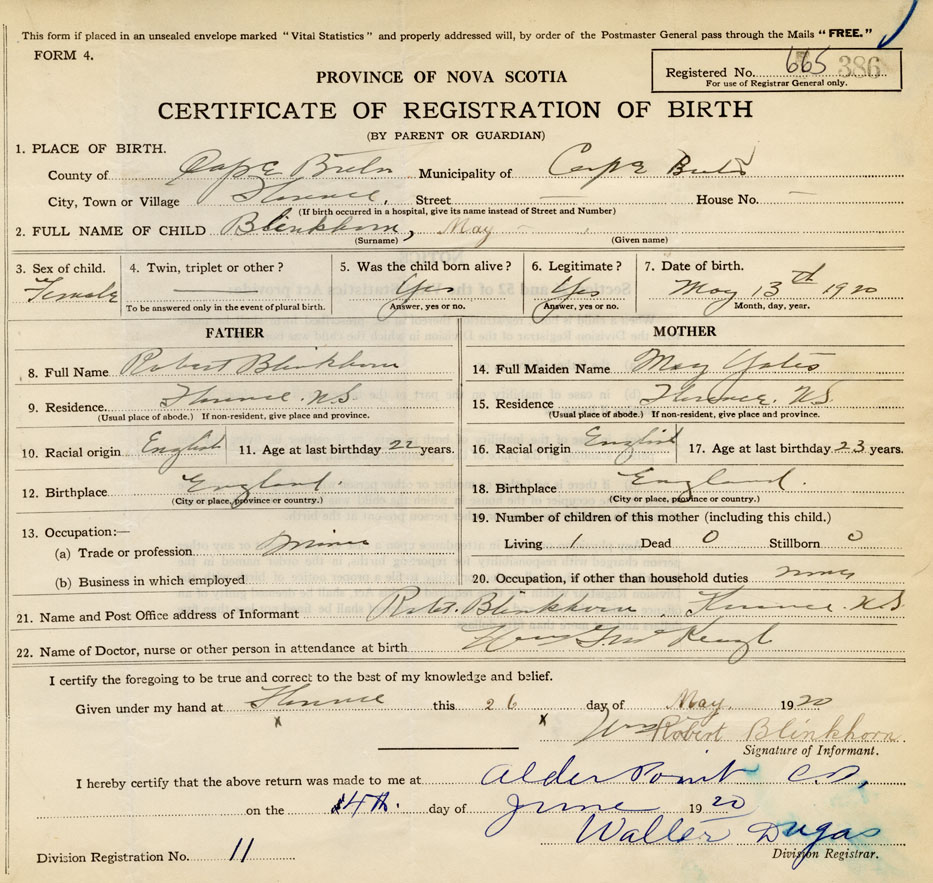 This form if placed in an unsealed envelope marked "Vital Statistics" and properly addressed will, by order of the Postmaster General pass through the Mails "FREE."
FORM 4.
Registered No. 665 386
For use of Registrar General only.
PROVINCE OF NOVA SCOTIA
CERTIFICATE OF REGISTRATION OF BIRTH
(BY PARENT OR GUARDIAN)
1. PLACE OF BIRTH.
County of Cape Breton Municipality of Cape Breton
City, Town or Village Florence, Street — House No. —
(If birth occurred in a hospital, give its name instead of Street and Number)
2. FULL NAME OF CHILD Blinkhorn, May
(Surname) (Given name)
3. Sex of child. 4. Twin, triplet or other? 5. Was the child born alive? 6. Legitimate? 7. Date of birth.
Female — Yes Yes May 13th 1920
To be answered only in the event of plural birth. Answer, yes or no. Answer, yes or no. Month, day, year.
FATHER MOTHER
8. Full Name Robert Blinkhorn 14. Full Maiden Name May Yates
9. Residence. Florence. N.S 15. Residence Florence. N.S.
(Usual place of abode.) If non-resident, give place and province. (Usual place of abode.) If non-resident, give place and province.
10. Racial origin English 11. Age at last birthday 22 years. 16. Racial origin English 17. Age at last birthday 23 years.
12. Birthplace England 18. Birthplace England.
(City or place, province or country.) (City or place, province or country.)
13. Occupation:— 19. Number of children of this mother (including this child.)
(a) Trade or profession Miner Living 1 Dead 0 Stillborn 0
(b) Business in which employed 20. Occupation, if other than household duties
21. Name and Post Office address of Informant Robt. Blinkhorn Florence. N.S
22. Name of Doctor, nurse or other person in attendance at birth
I certify the foregoing to be true and correct to the best of my knowledge and belief.
Given under my hand at Florence this 26 day of May 1920
x x Robert Blinkhorn
Signature of Informant.
I hereby certify that the above return was made to me at Alder Point C.B.
on the 4th. day of June 1920
Walter Dugas
Division Registrar.
Division Registration No. 11